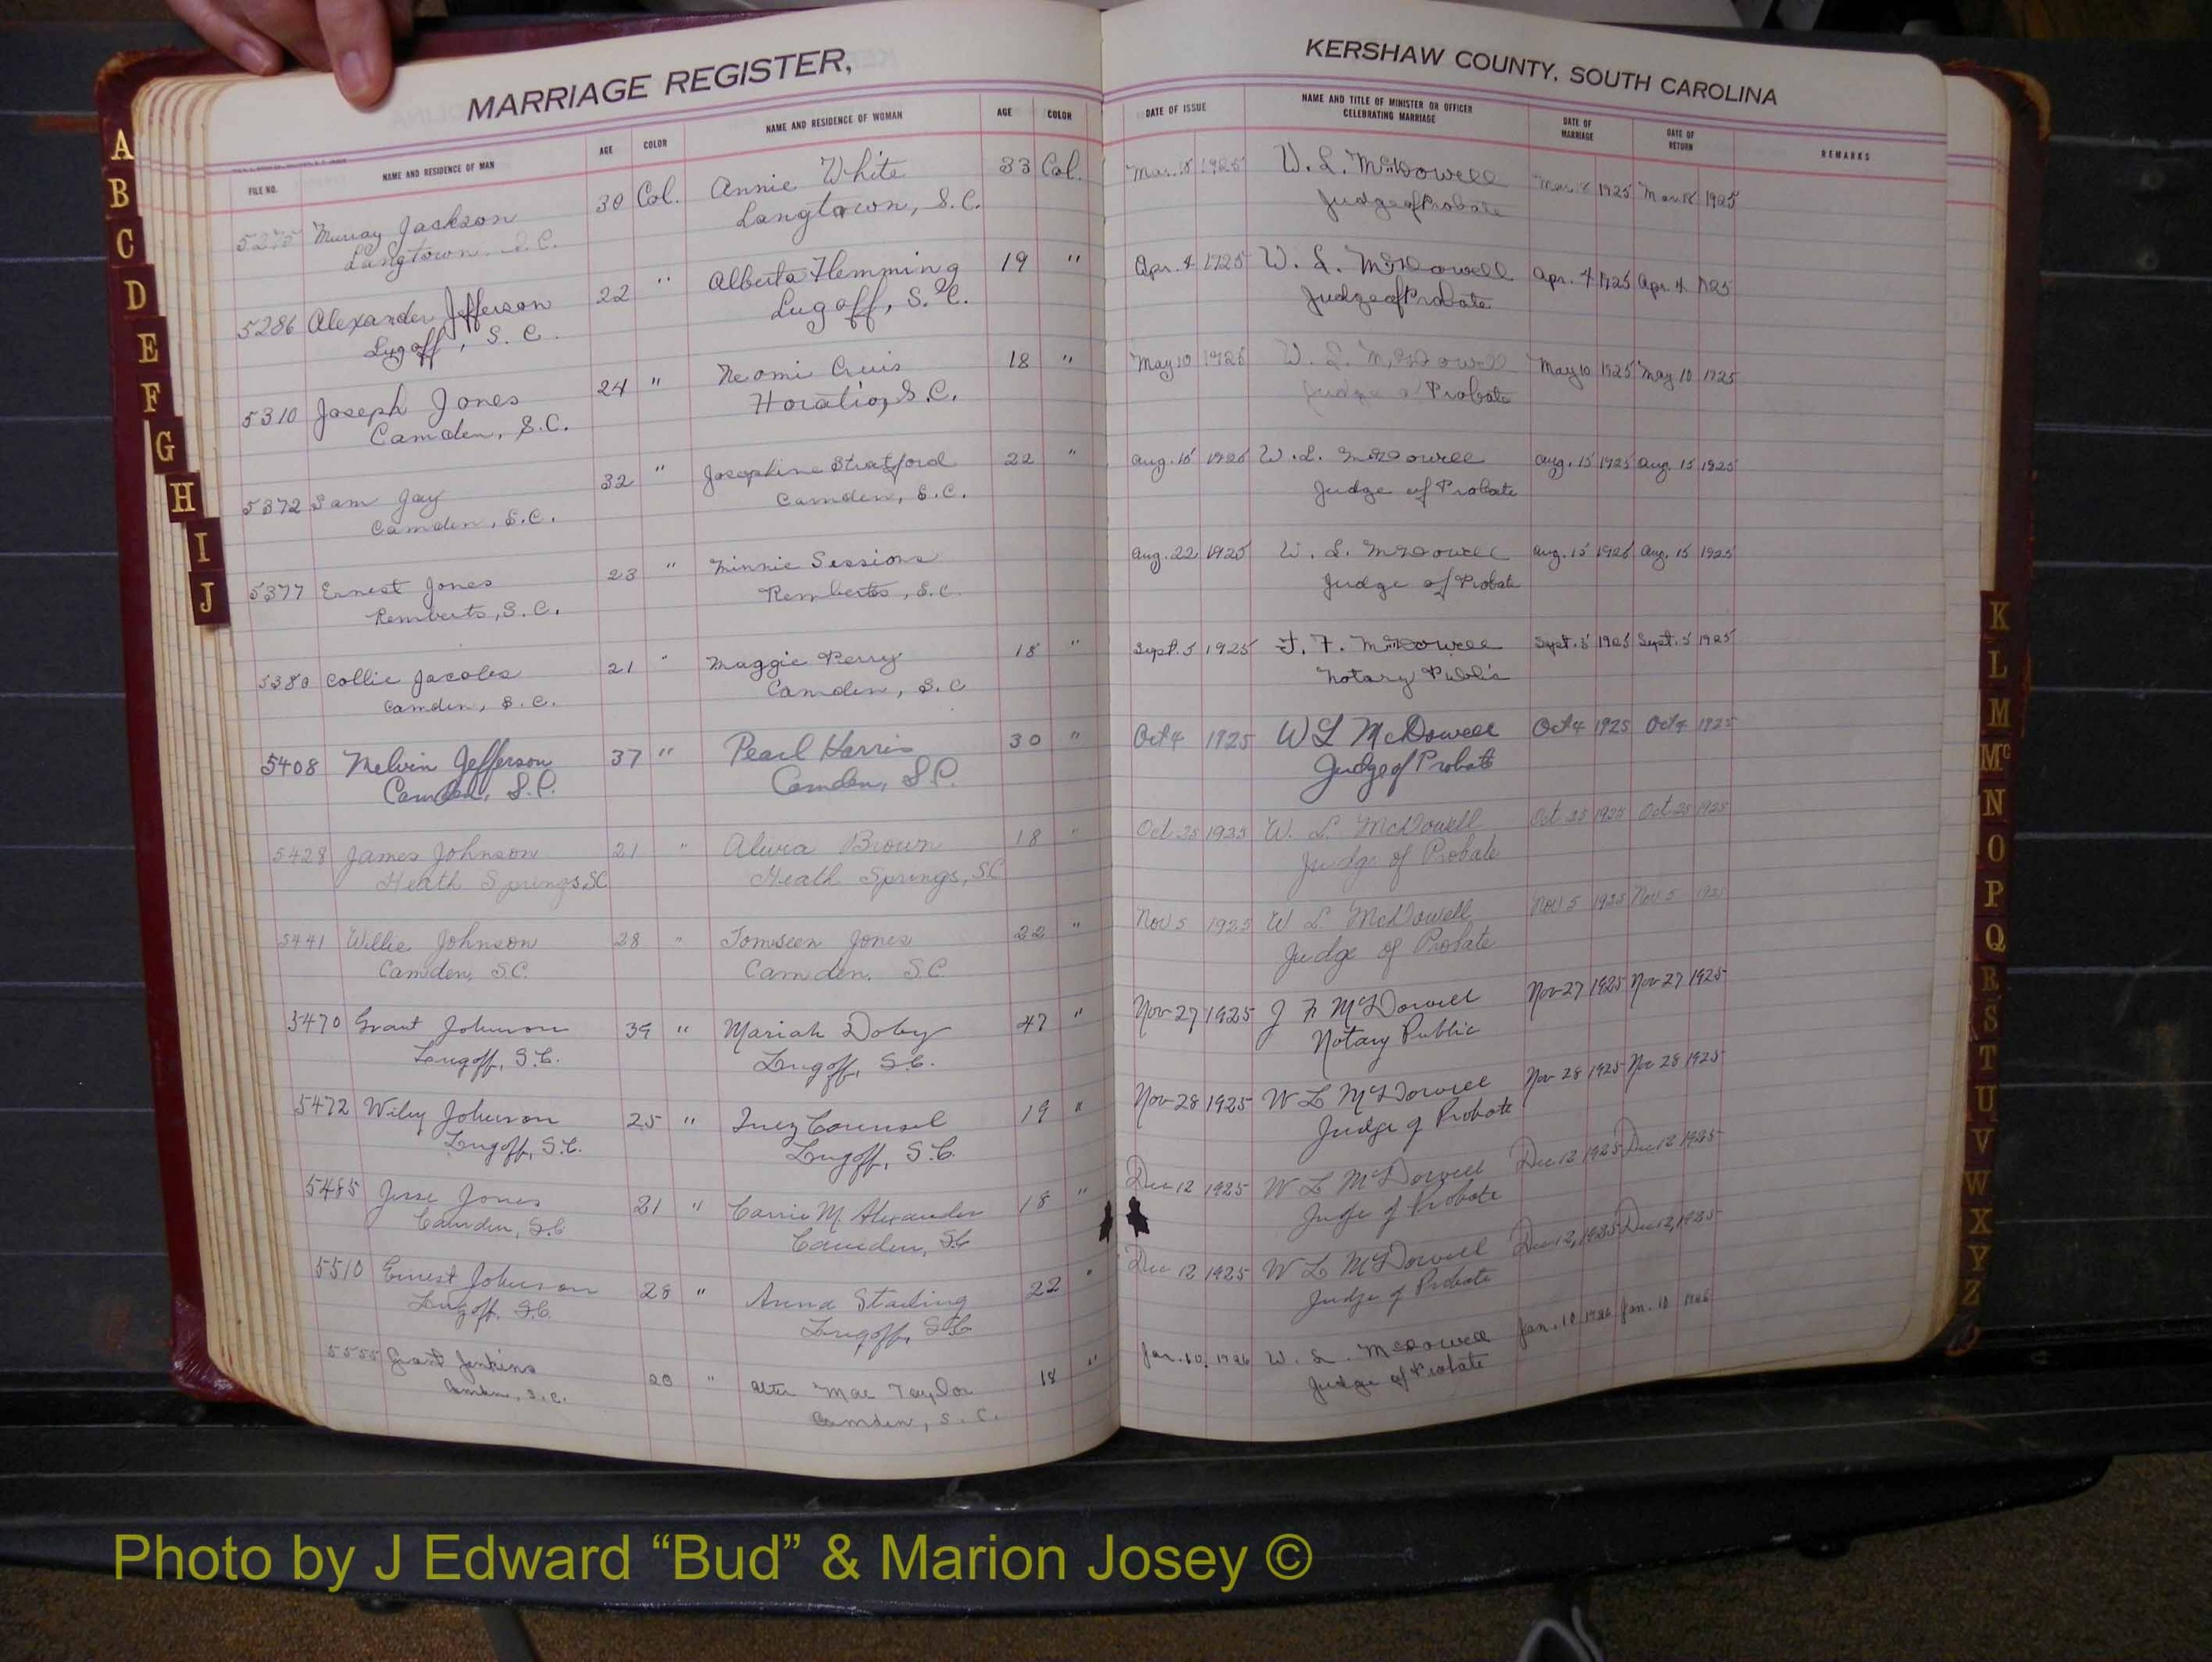 MARRIAGE REGISTER,
FILE NO. NAME AND RESIDENCE OF MAN AGE COLOR NAME AND RESIDENCE OF WOMAN AGE COLOR
5275 Murray Jackson 30 Col. Annie White 33 Col.
Langtown S.C. Langtown, S.C.
5286 Alexander Jefferson 22 " Alberta Flemming 19 "
Lugoff, S.C. Lugoff, S.C.
5310 Joseph Jones 24 " Neomi 18 "
Camden, S.C. Horatio, S.C.
5372 Sam Jay 32 " Josephine Stratford 22 "
Camden, S.C. Camden, S.C.
5377 Ernest Jones 23 " Minnie Sessions
Remberts, S.C. Remberts, S.C.
5380 Collie Jacobs 21 " Maggie Perry 18 "
Camden, S.C. Camden, S.C
5408 Melvin Jefferson 37 " Pearl Harris 30 "
Camden, S.C. Camden, S.C.
5428 James Johnson 21 " Brown 18 "
Heath Springs, SC Heath Springs, SC
5441 Willie Johnson 28 " Tomseen Jones 22 "
Camden, S.C. Camden, S.C
5470 Grant Johnson 39 " Mariah Doby 47 "
Lugoff, S.C. Lugoff, S.C.
5472 Wiley Johnson 25 " Inez Counsel 19 "
Lugoff, S.C. Lugoff, S.C.
5485 Jesse Jones 21 " Carrie M. Alexander 18 "
Camden, S.C Camden, S.C
5510 Ernest Johnson 28 " Anna Starling 22 "
Lugoff, S.C. Lugoff, S.C.
5555 Grant Jenkins 20 " Mae Taylor 18 "
Camden, S.C. Camden, S.C.
KERSHAW COUNTY, SOUTH CAROLINA
DATE OF ISSUE NAME AND TITLE OF MINISTER OR OFFICER CELEBRATING MARRIAGE DATE OF MARRIAGE DATE OF RETURN REMARKS
Mar. 1925 W. L. McDowell Mar. 1925 Mar. 1925
Judge of Probate
Apr. 4 1925 W. L. McDowell Apr. 4 1925 Apr. 4 1925
Judge of Probate
May 10 1925 W. L. McDowell May 10 1925 May 10 1925
Judge of Probate
Aug. 15 1925 W. L. McDowell Aug. 15 1925 Aug. 15 1925
Judge of Probate
Aug. 22 1925 W. L. McDowell Aug. 15 1925 Aug. 15 1925
Judge of Probate
Sept. 5 1925 J. F. McDowell Sept. 5 1925 Sept. 5 1925
Notary Public
Oct 4 1925 W L McDowell Oct 4 1925 Oct 4 1925
Judge of Probate
Oct 25 1925 W. L. McDowell Oct 25 1925 Oct 25 1925
Judge of Probate
Nov 5 1925 W L McDowell Nov 5 1925 Nov 5 1925
Judge of Probate
Nov 27 1925 J F McDowell Nov 27 1925 Nov 27 1925
Notary Public
Nov 28 1925 W L McDowell Nov 28 1925 Nov 28 1925
Judge of Probate
Dec 12 1925 W L McDowell Dec 12 1925 Dec 12 1925
Judge of Probate
Dec 12 1925 W L McDowell Dec 12, 1925 Dec 12, 1925
Judge of Probate
Jan. 10, 1926 W. L. McDowell Jan. 10 1926 Jan. 10 1926
Judge of Probate
A
B
C
D
E
F
G
H
I
J
K
L
M
Mc
N
O
P
Q
R
S
T
U
V
W
X
Y
Z
Photo by J Edward “Bud” & Marion Josey ©